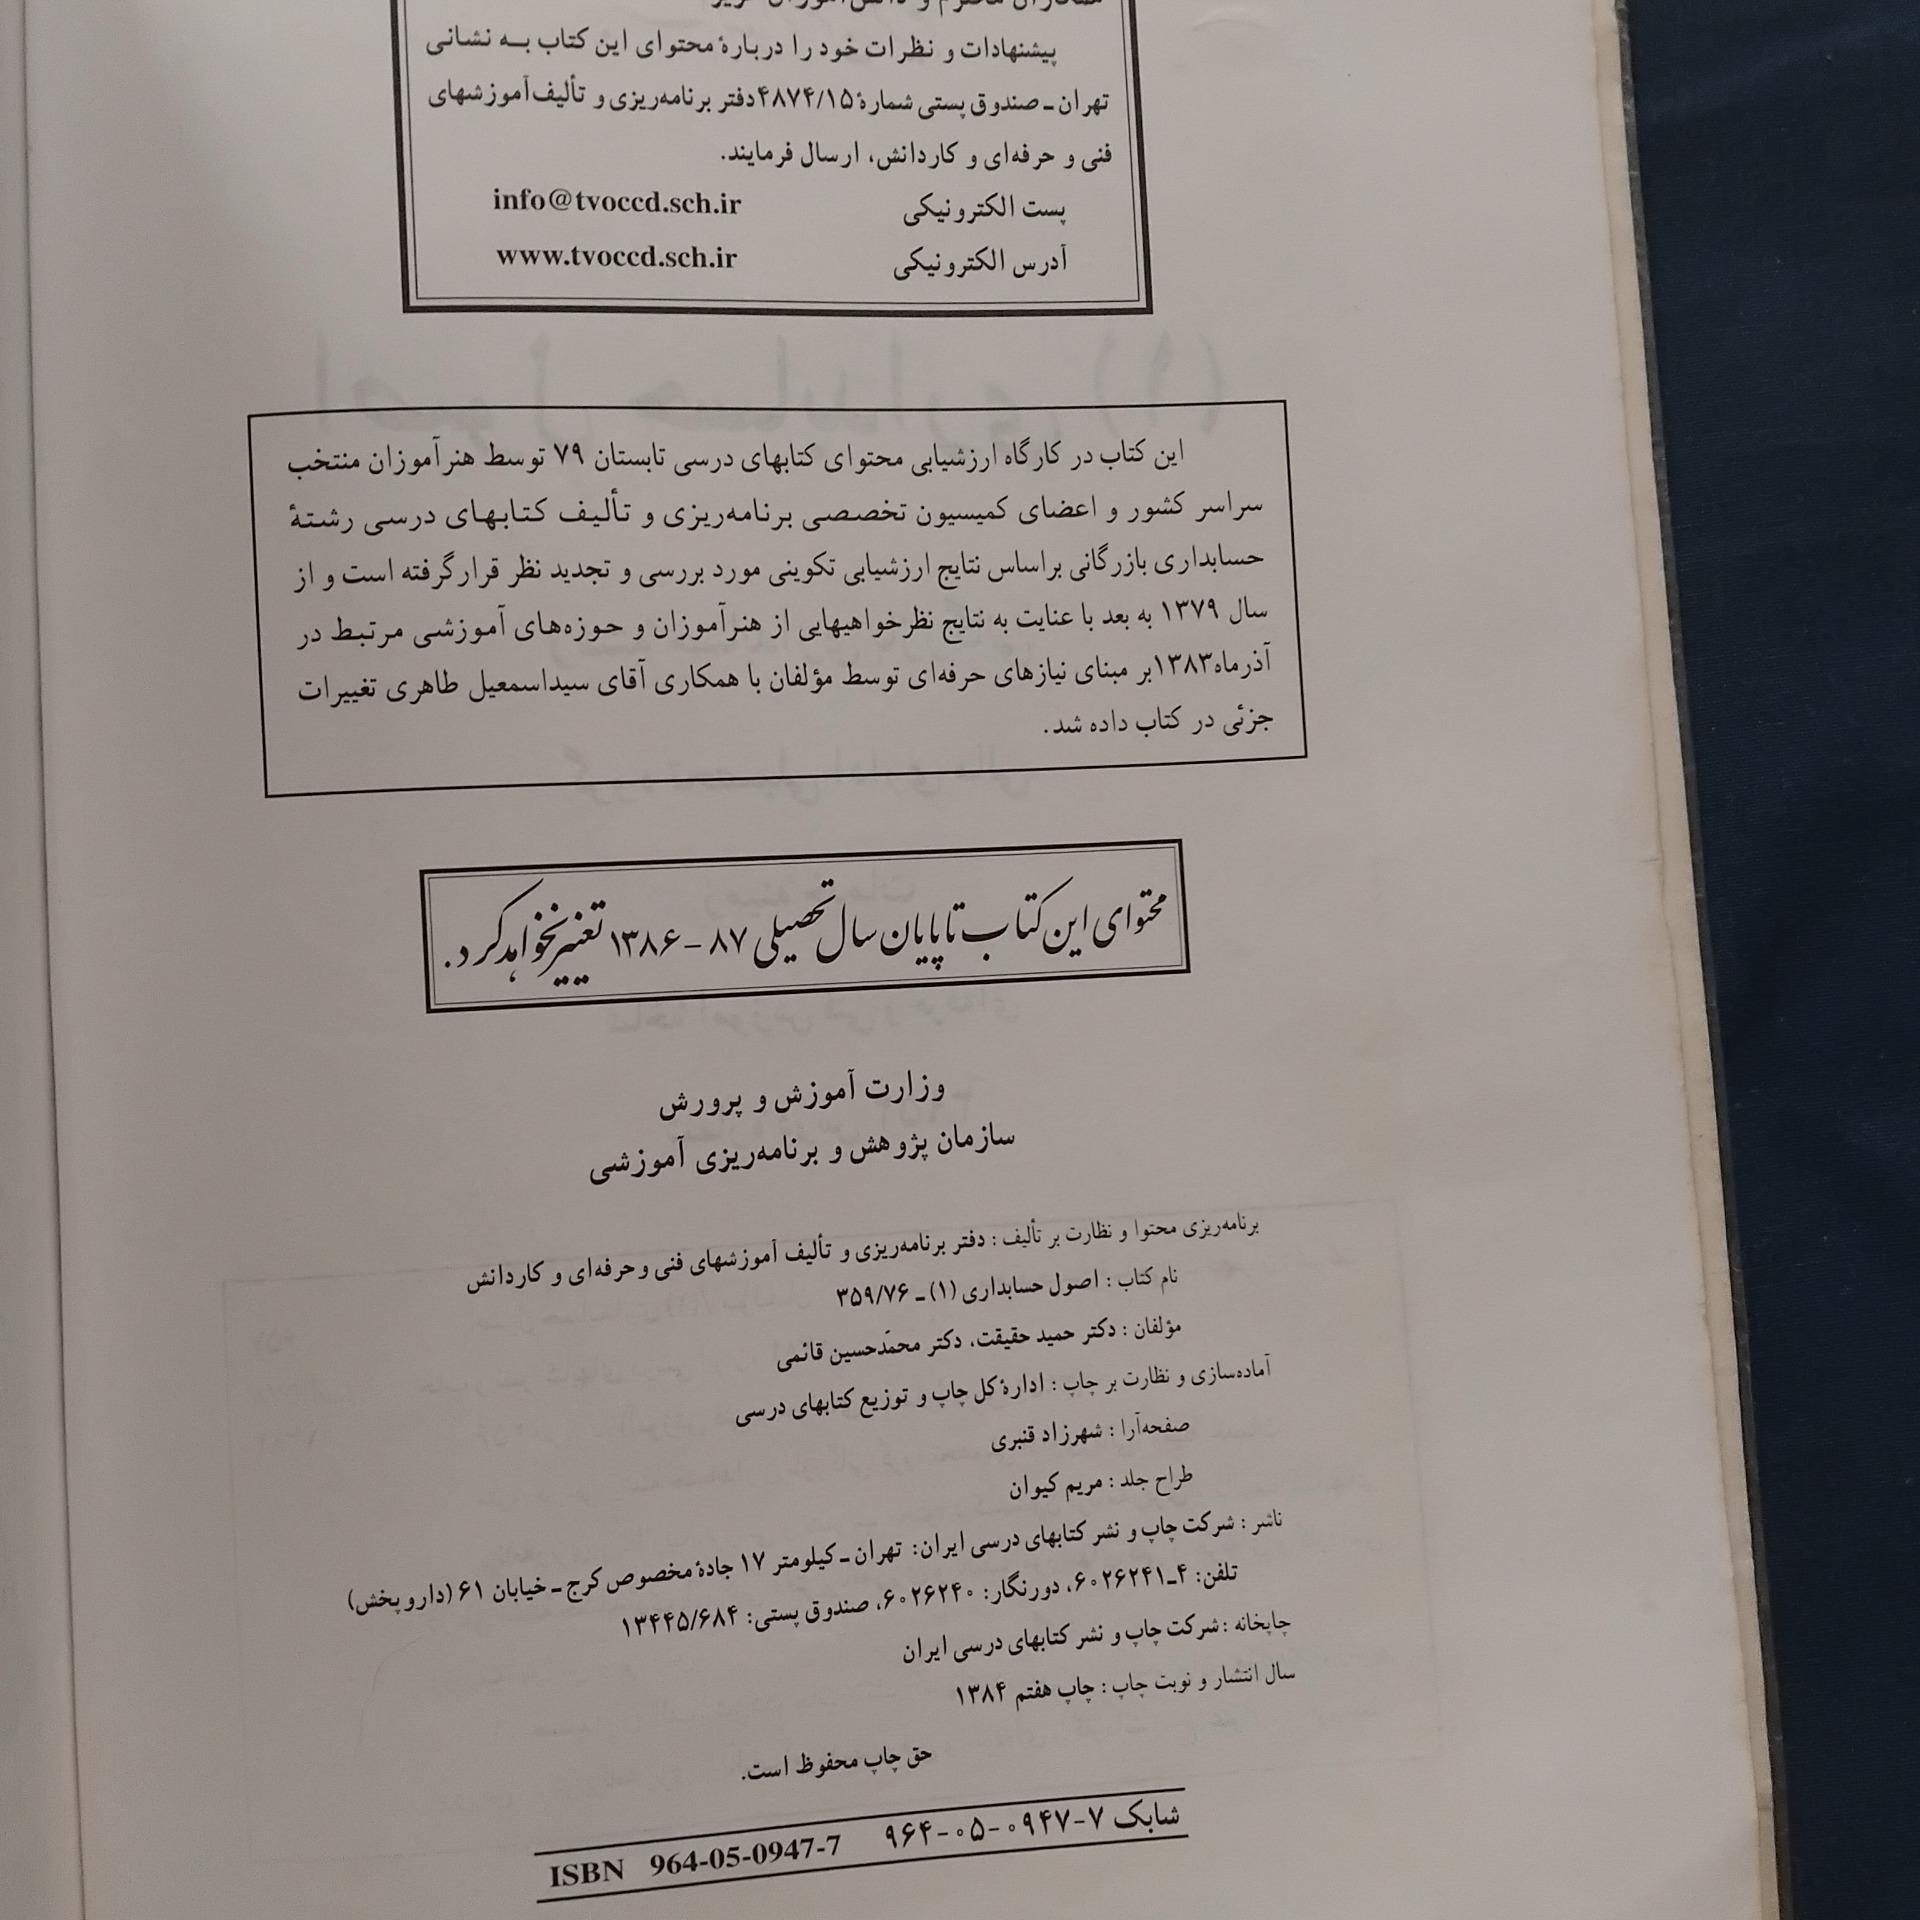 همکاران محترم و دانش‌آموزان عزیز:
پیشنهادات و نظرات خود را دربارهٔ محتوای این کتاب به نشانی
تهران ـ صندوق پستی شمارهٔ ۴۸۷۴/۱۵ دفتر برنامه‌ریزی و تألیف آموزشهای
فنی و حرفه‌ای و کاردانش، ارسال فرمایند.
پست الکترونیکی info@tvoccd.sch.ir
آدرس الکترونیکی www.tvoccd.sch.ir
این کتاب در کارگاه ارزشیابی محتوای کتابهای درسی تابستان ۷۹ توسط هنرآموزان منتخب
سراسر کشور و اعضای کمیسیون تخصصی برنامه‌ریزی و تألیف کتابهای درسی رشتهٔ
حسابداری بازرگانی براساس نتایج ارزشیابی تکوینی مورد بررسی و تجدید نظر قرارگرفته است و از
سال ۱۳۷۹ به بعد با عنایت به نتایج نظرخواهیهایی از هنرآموزان و حوزه‌های آموزشی مرتبط در
آذرماه ۱۳۸۳ بر مبنای نیازهای حرفه‌ای توسط مؤلفان با همکاری آقای سیداسمعیل طاهری تغییرات
جزئی در کتاب داده شد.
محتوای این کتاب تا پایان سال تحصیلی ۸۷ - ۱۳۸۶ تغییر نخواهد کرد.
وزارت آموزش و پرورش
سازمان پژوهش و برنامه‌ریزی آموزشی
برنامه‌ریزی محتوا و نظارت بر تألیف : دفتر برنامه‌ریزی و تألیف آموزشهای فنی و حرفه‌ای و کاردانش
نام کتاب : اصول حسابداری (۱) ـ ۳۵۹/۷۶
مؤلفان : دکتر حمید حقیقت، دکتر محمّدحسین قائمی
آماده‌سازی و نظارت بر چاپ : ادارهٔ کل چاپ و توزیع کتابهای درسی
صفحه‌آرا : شهرزاد قنبری
طراح جلد : مریم کیوان
ناشر : شرکت چاپ و نشر کتابهای درسی ایران: تهران ـ کیلومتر ۱۷ جادهٔ مخصوص کرج ـ خیابان ۶۱ (داروپخش)
تلفن: ۴ـ۶۰۲۶۲۴۱، دورنگار: ۶۰۲۶۲۴۰، صندوق پستی: ۱۳۴۴۵/۶۸۴
چاپخانه : شرکت چاپ و نشر کتابهای درسی ایران
سال انتشار و نوبت چاپ : چاپ هفتم ۱۳۸۴
حق چاپ محفوظ است.
شابک ۷-۰۹۴۷-۰۵-۹۶۴ ISBN 964-05-0947-7